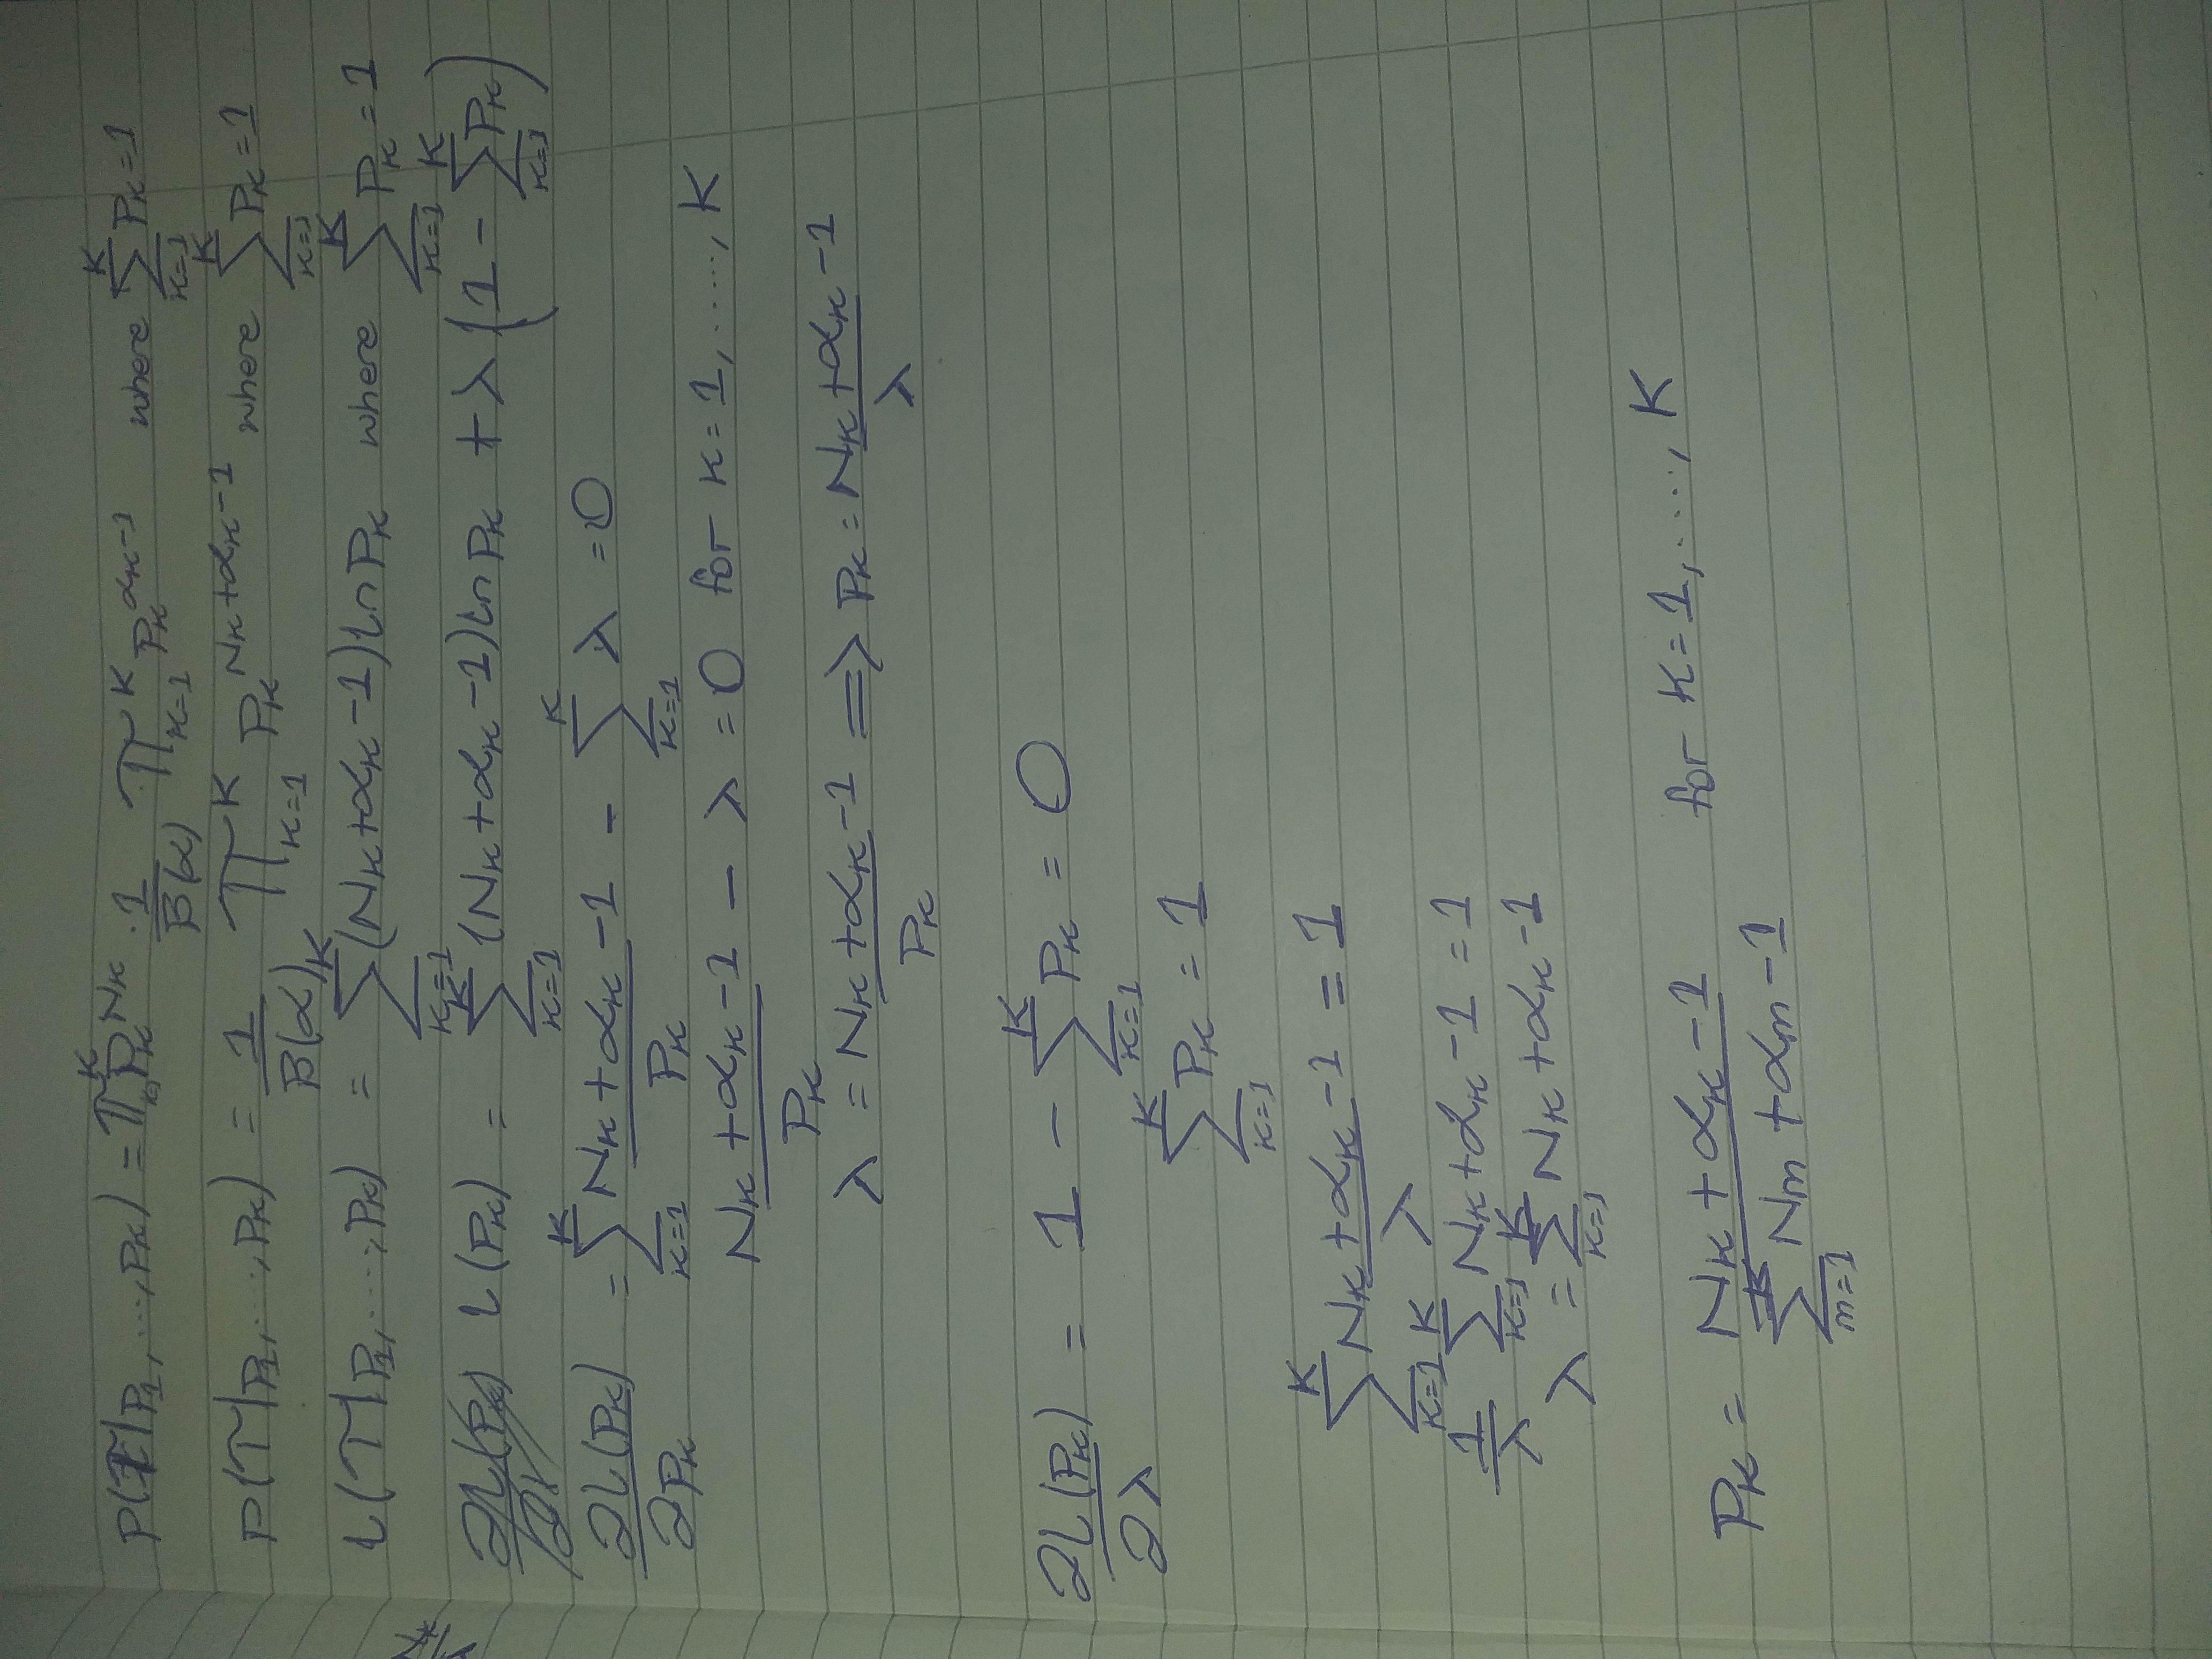 P(T|P₁, ..., P_K) = ∏_{k=1}^{K} P_k^{N_k} · 1/B(α) ∏_{k=1}^{K} P_k^{α_k-1} where ∑_{k=1}^{K} P_k = 1
P(T|P₁, ..., P_K) = 1/B(α) ∏_{k=1}^{K} P_k^{N_k+α_k-1} where ∑_{k=1}^{K} P_k = 1
l(T|P₁, ..., P_K) = ∑_{k=1}^{K} (N_k+α_k-1) ln P_k where ∑_{k=1}^{K} P_k = 1
l(P_k) = ∑_{k=1}^{K} (N_k+α_k-1) ln P_k + λ(1 - ∑_{k=1}^{K} P_k)
∂l(P_k)/∂P_k = ∑_{k=1}^{K} (N_k+α_k-1)/P_k - ∑_{k=1}^{K} λ = 0
(N_k+α_k-1)/P_k - λ = 0 for k=1, ....., K
λ = (N_k+α_k-1)/P_k ⟹ P_k = (N_k+α_k-1)/λ
∂l(P_k)/∂λ = 1 - ∑_{k=1}^{K} P_k = 0
∑_{k=1}^{K} P_k = 1
∑_{k=1}^{K} (N_k+α_k-1)/λ = 1
1/λ ∑_{k=1}^{K} N_k+α_k-1 = 1
λ = ∑_{k=1}^{K} N_k+α_k-1
P_k = (N_k+α_k-1)/(∑_{m=1}^{K} N_m+α_m-1) for k=1, ...., K